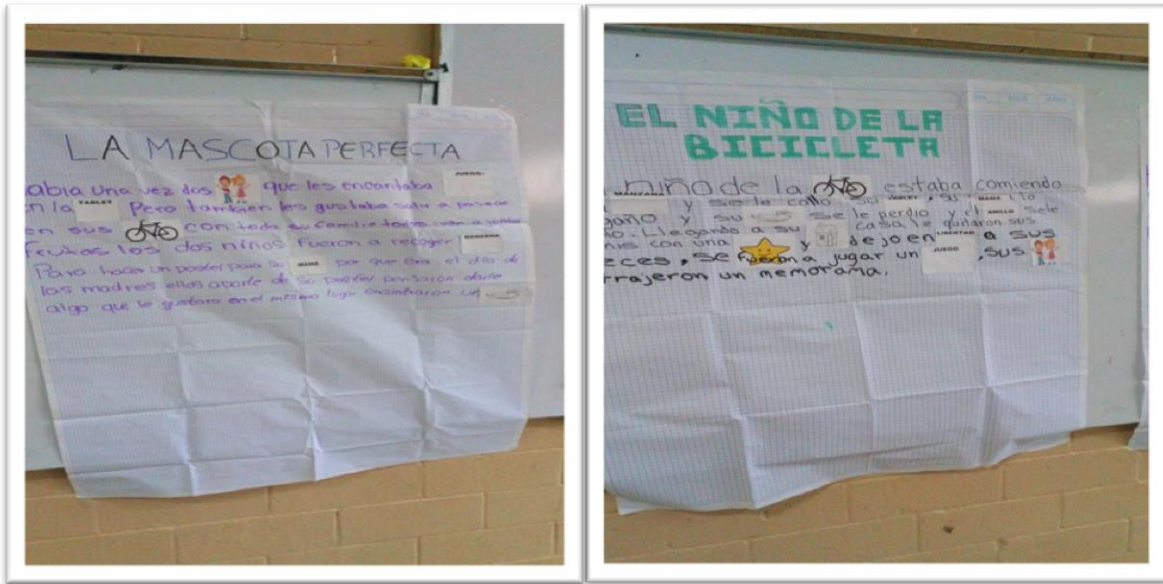 LA MASCOTA PERFECTA
abia una vez dos que les encantaba JUEGO.
n la TABLET Pero tambien les gustaba salir a pasear
en sus con toda su familia todos
frutas los dos niños Fueron a recoger MANZANA
Para hacer un postel para su MAMA por que era el dia de
las madres ellos aparte de su pastel pensaron darle
algo que le gustara en el mismo lugar encontraron un
EL NIÑO DE LA
BICICLETA
niño de la estaba comiendo
MANZANA y se le callo su TABLET, su MAMA lo
gaño y su se le perdio y el ANILLO sele
o. Llegando a su casa, le quitaron sus
nes con una y dejo en LIBERTAD a sus
eces, se fueron a jugar un JUEGO, sus
trajeron un memorama.